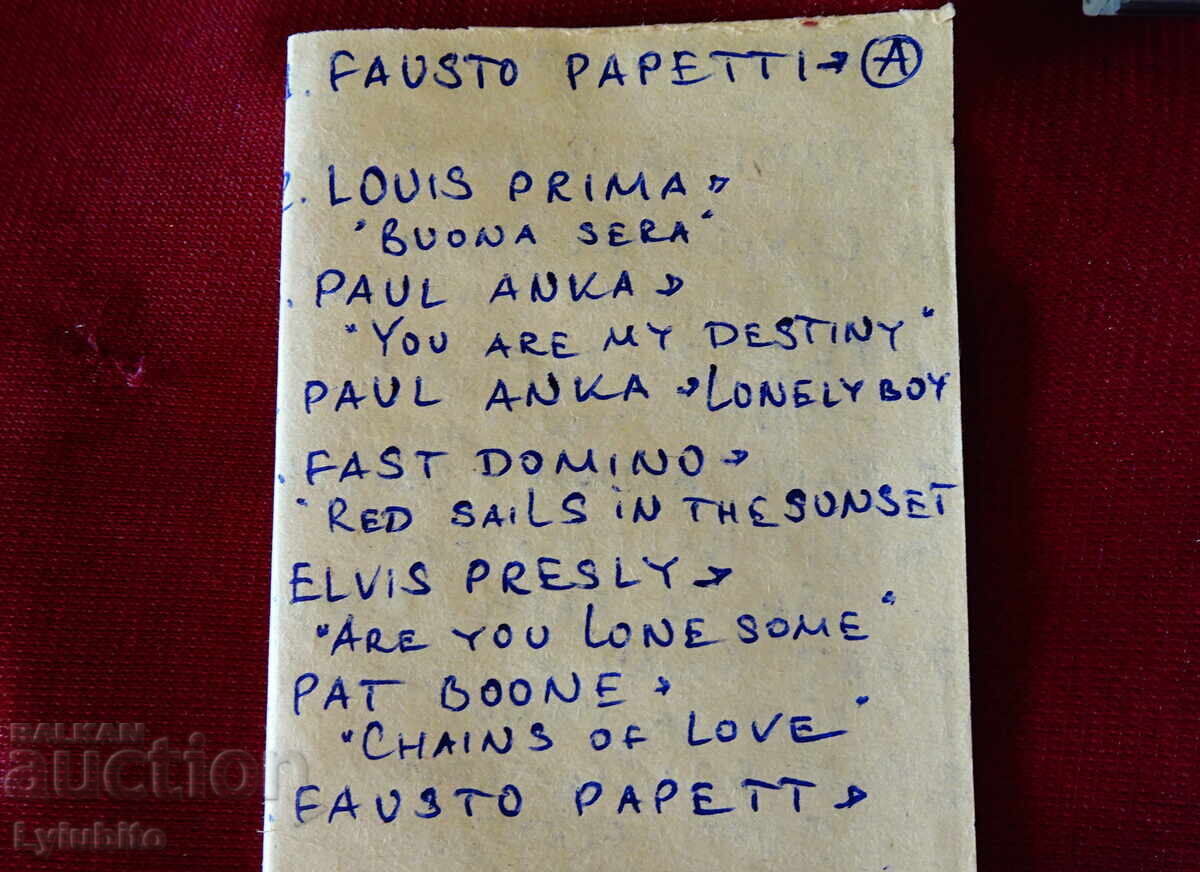 1. FAUSTO PAPETTI → A
2. LOUIS PRIMA →
"BUONA SERA"
. PAUL ANKA →
"YOU ARE MY DESTINY"
. PAUL ANKA → LONELY BOY
. FAST DOMINO →
"RED SAILS IN THE SUNSET
ELVIS PRESLY →
"ARE YOU LONE SOME"
PAT BOONE →
"CHAINS OF LOVE"
. FAUSTO PAPETT →
BALKAN
auction
Lyiubito